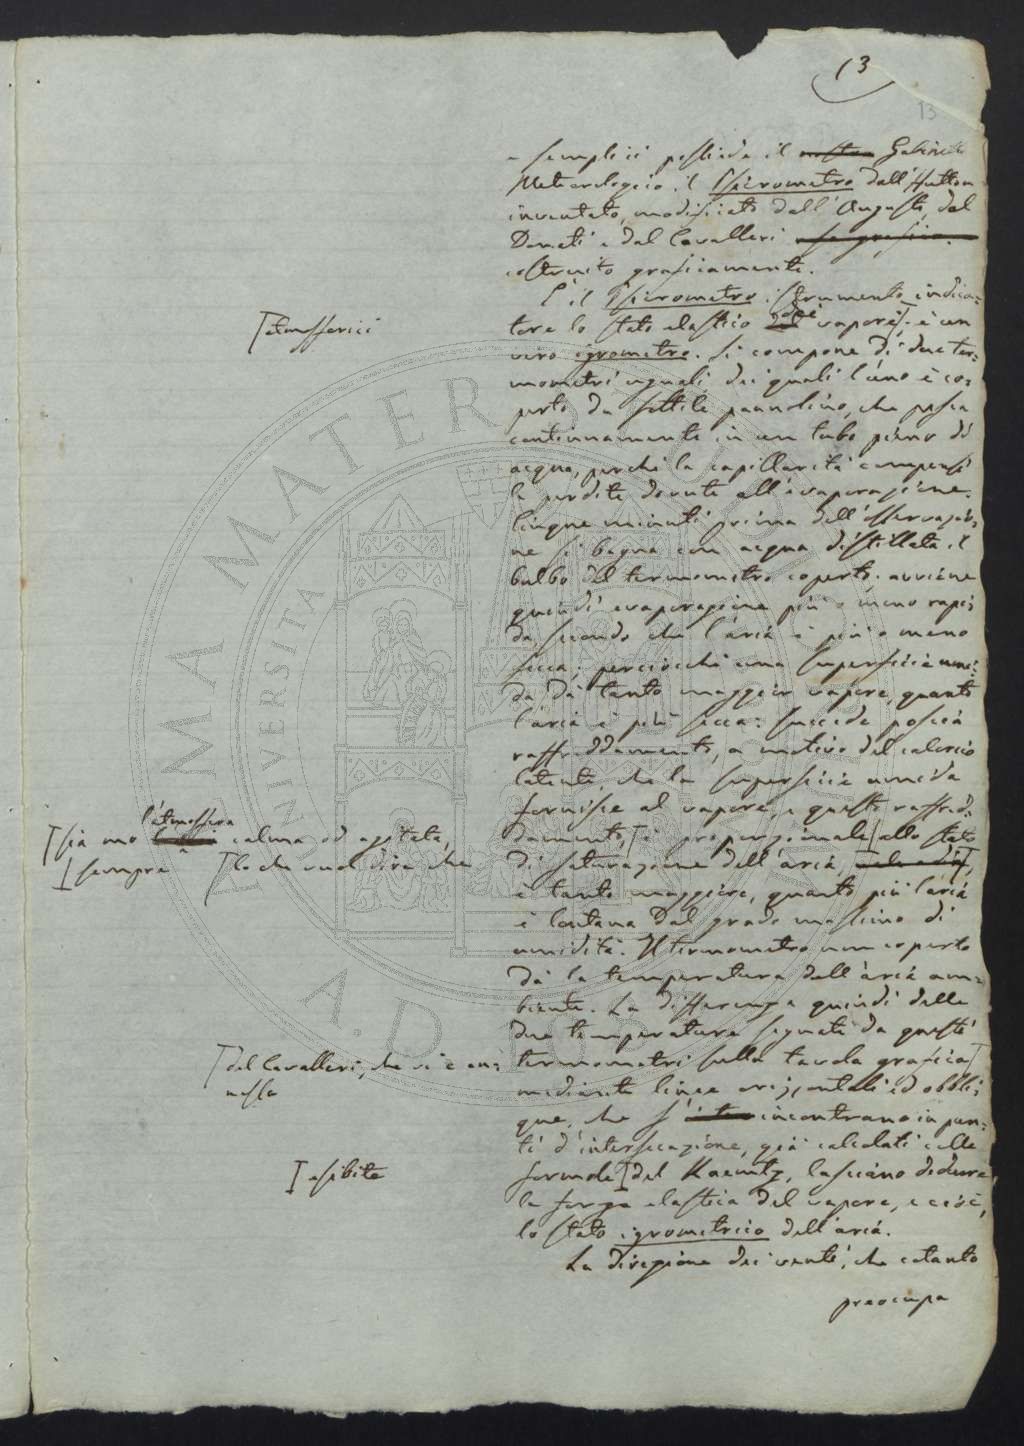 13
13
e semplici possiede il nostro Gabinetto
Meteorologico il Psicrometro dall'Hutton
inventato, modificato dall'August, dal
Donati e dal Cavalleri
costruito graficamente.
È il Psicrometro istrumento indica-
tore lo stato elastico dei vapori; è un
vero igrometro. Si compone di due ter-
mometri uguali, dei quali l'uno è co-
perto da sottile pannolino, che pesca
continuamente in un tubo pieno di
acqua, perchè la capillarità compensi
le perdite dovute all'evaporazione.
Cinque minuti prima dell'osservazio-
ne si bagna con acqua distillata il
bulbo del termometro coperto: avviene
quindi evaporazione più o meno rapi-
da, secondo che l'aria è più o meno
secca; perciocchè una superficie umi-
da dà tanto maggior vapore, quanto
l'aria è più secca: succede poscia
raffreddamento, a motivo del calorico
latente, che la superficie umida
fornisce al vapore, e questo raffred-
damento, è proporzionale allo stato
di saturazione dell'aria,
è tanto maggiore, quanto più l'aria
è lontana dal grado massimo di
umidità. Il termometro non coperto
dà la temperatura dell'aria am-
biente. La differenza quindi delle
due temperature segnate da questi
termometri sulla tavola grafica
mediante linee orizzontali ed obbli-
que, che s'incontrano in pun-
ti d'intersecazione, già calcolati colle
formole del Kaemtz, lasciano dedurre
la forza elastica del vapore, e cioè,
lo stato igrometrico dell'aria.
La direzione dei venti, che cotanto
preocupa
atmosferici
l'atmosfera
sia calma od agitata,
sempre
lo che vuol dire che
del Cavalleri, che vi è an-
nessa
esibite
ALMA MATER STUDIORUM
UNIVERSITÀ
A.D. 1088